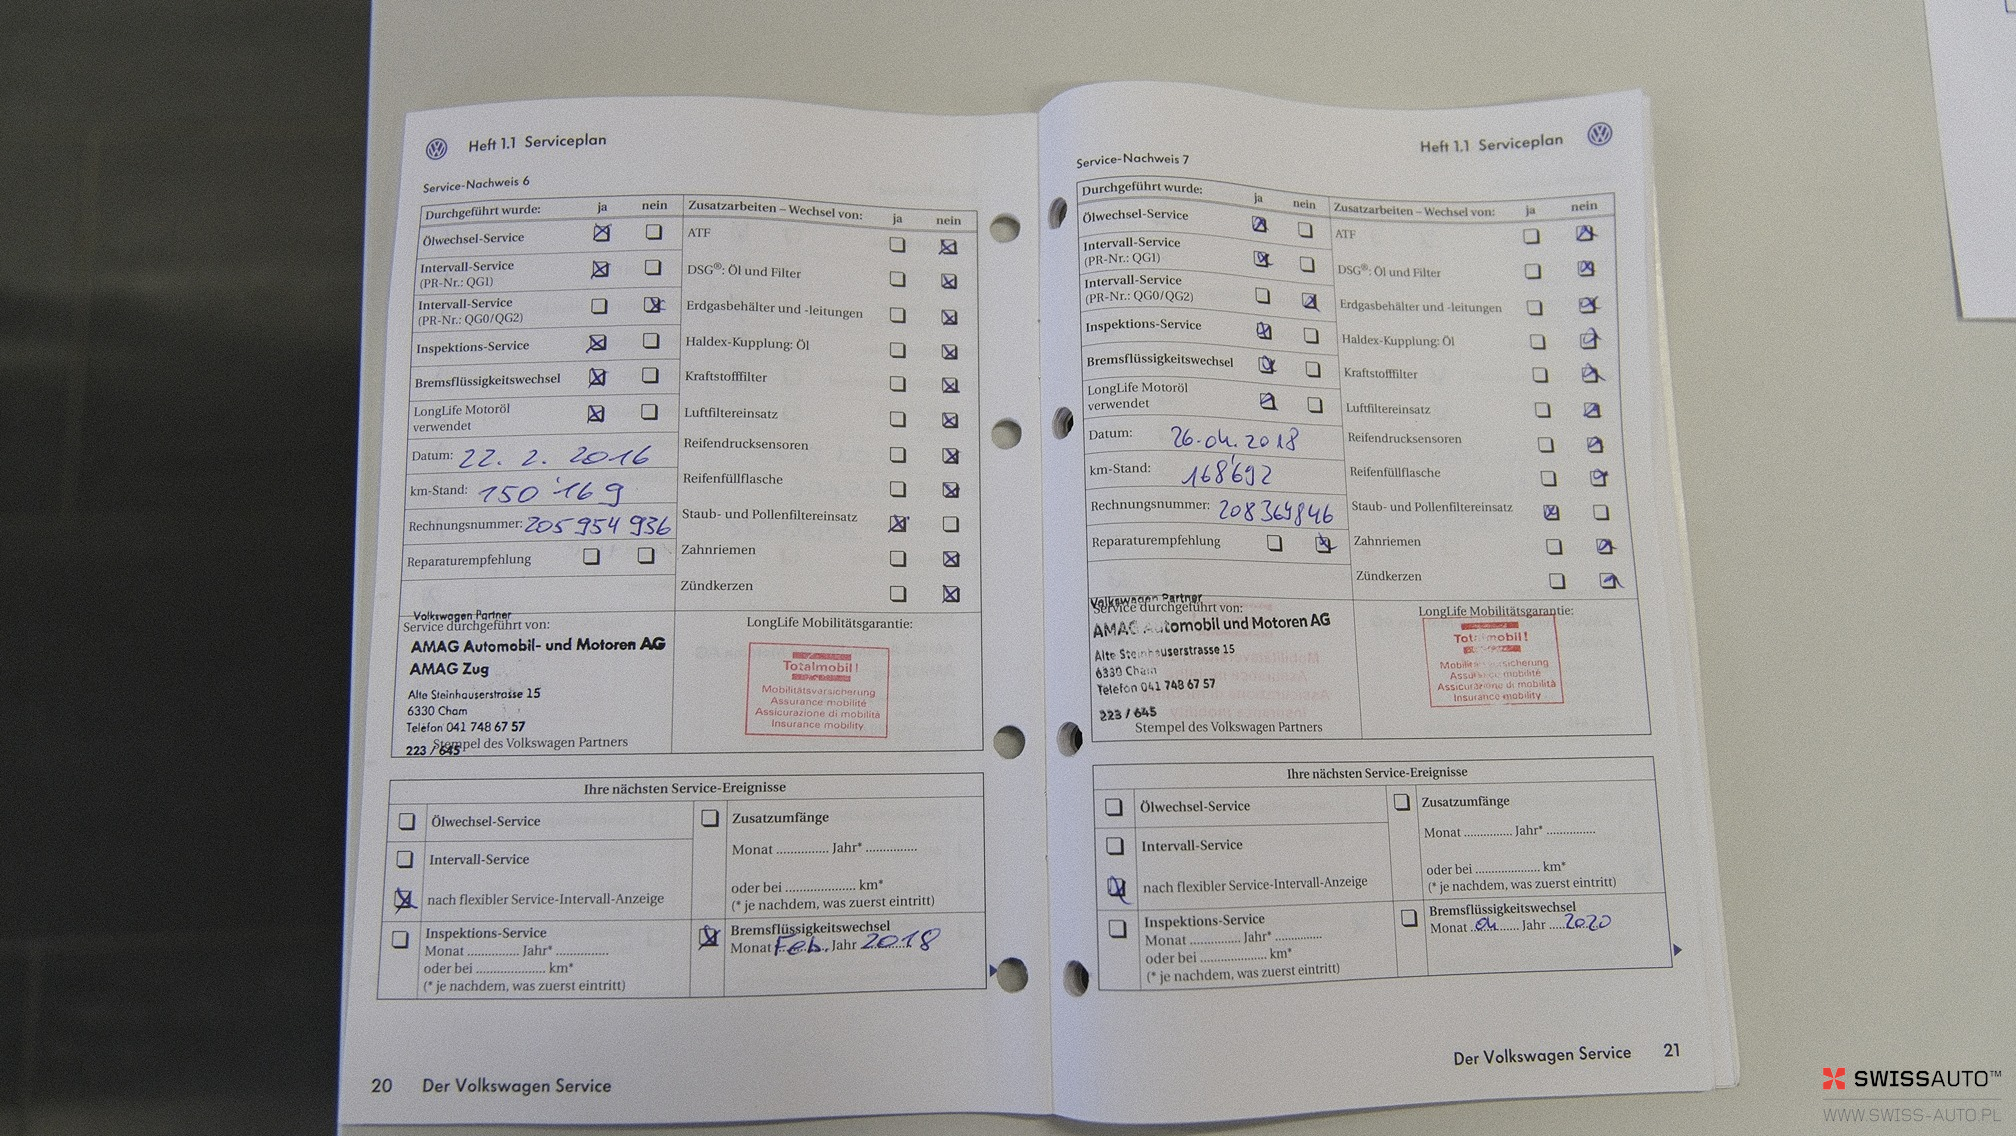 Heft 1.1 Serviceplan
Service-Nachweis 6
Durchgeführt wurde: ja nein
Ölwechsel-Service
Intervall-Service
(PR-Nr.: QG1)
Intervall-Service
(PR-Nr.: QG0/QG2)
Inspektions-Service
Bremsflüssigkeitswechsel
LongLife Motoröl
verwendet
Datum: 22. 2. 2016
km-Stand: 150'169
Rechnungsnummer: 205 954 936
Reparaturempfehlung
Zusatzarbeiten – Wechsel von: ja nein
ATF
DSG®: Öl und Filter
Erdgasbehälter und -leitungen
Haldex-Kupplung: Öl
Kraftstofffilter
Luftfiltereinsatz
Reifendrucksensoren
Reifenfüllflasche
Staub- und Pollenfiltereinsatz
Zahnriemen
Zündkerzen
Volkswagen Partner
Service durchgeführt von:
AMAG Automobil- und Motoren AG
AMAG Zug
Alte Steinhauserstrasse 15
6330 Cham
Telefon 041 748 67 57
223 / 645
Stempel des Volkswagen Partners
LongLife Mobilitätsgarantie:
Totalmobil!
Mobilitätsversicherung
Assurance mobilité
Assicurazione di mobilità
Insurance mobility
Ihre nächsten Service-Ereignisse
Ölwechsel-Service
Intervall-Service
nach flexibler Service-Intervall-Anzeige
Inspektions-Service
Monat ............... Jahr* ...............
oder bei .................... km*
(* je nachdem, was zuerst eintritt)
Zusatzumfänge
Monat ............... Jahr* ...............
oder bei .................... km*
(* je nachdem, was zuerst eintritt)
Bremsflüssigkeitswechsel
Monat Feb. Jahr 2018
20 Der Volkswagen Service
Heft 1.1 Serviceplan
Service-Nachweis 7
Durchgeführt wurde: ja nein
Ölwechsel-Service
Intervall-Service
(PR-Nr.: QG1)
Intervall-Service
(PR-Nr.: QG0/QG2)
Inspektions-Service
Bremsflüssigkeitswechsel
LongLife Motoröl
verwendet
Datum: 26.04.2018
km-Stand: 168'692
Rechnungsnummer: 208369846
Reparaturempfehlung
Zusatzarbeiten – Wechsel von: ja nein
ATF
DSG®: Öl und Filter
Erdgasbehälter und -leitungen
Haldex-Kupplung: Öl
Kraftstofffilter
Luftfiltereinsatz
Reifendrucksensoren
Reifenfüllflasche
Staub- und Pollenfiltereinsatz
Zahnriemen
Zündkerzen
Volkswagen Partner
Service durchgeführt von:
AMAG Automobil und Motoren AG
Alte Steinhauserstrasse 15
6330 Cham
Telefon 041 748 67 57
223 / 645
Stempel des Volkswagen Partners
LongLife Mobilitätsgarantie:
Totalmobil!
Mobilitätsversicherung
Assurance mobilité
Assicurazione di mobilità
Insurance mobility
Ihre nächsten Service-Ereignisse
Ölwechsel-Service
Intervall-Service
nach flexibler Service-Intervall-Anzeige
Inspektions-Service
Monat ............... Jahr* ...............
oder bei .................... km*
(* je nachdem, was zuerst eintritt)
Zusatzumfänge
Monat ............... Jahr* ...............
oder bei .................... km*
(* je nachdem, was zuerst eintritt)
Bremsflüssigkeitswechsel
Monat 04 Jahr 2020
Der Volkswagen Service 21
SWISSAUTO™
WWW.SWISS-AUTO.PL